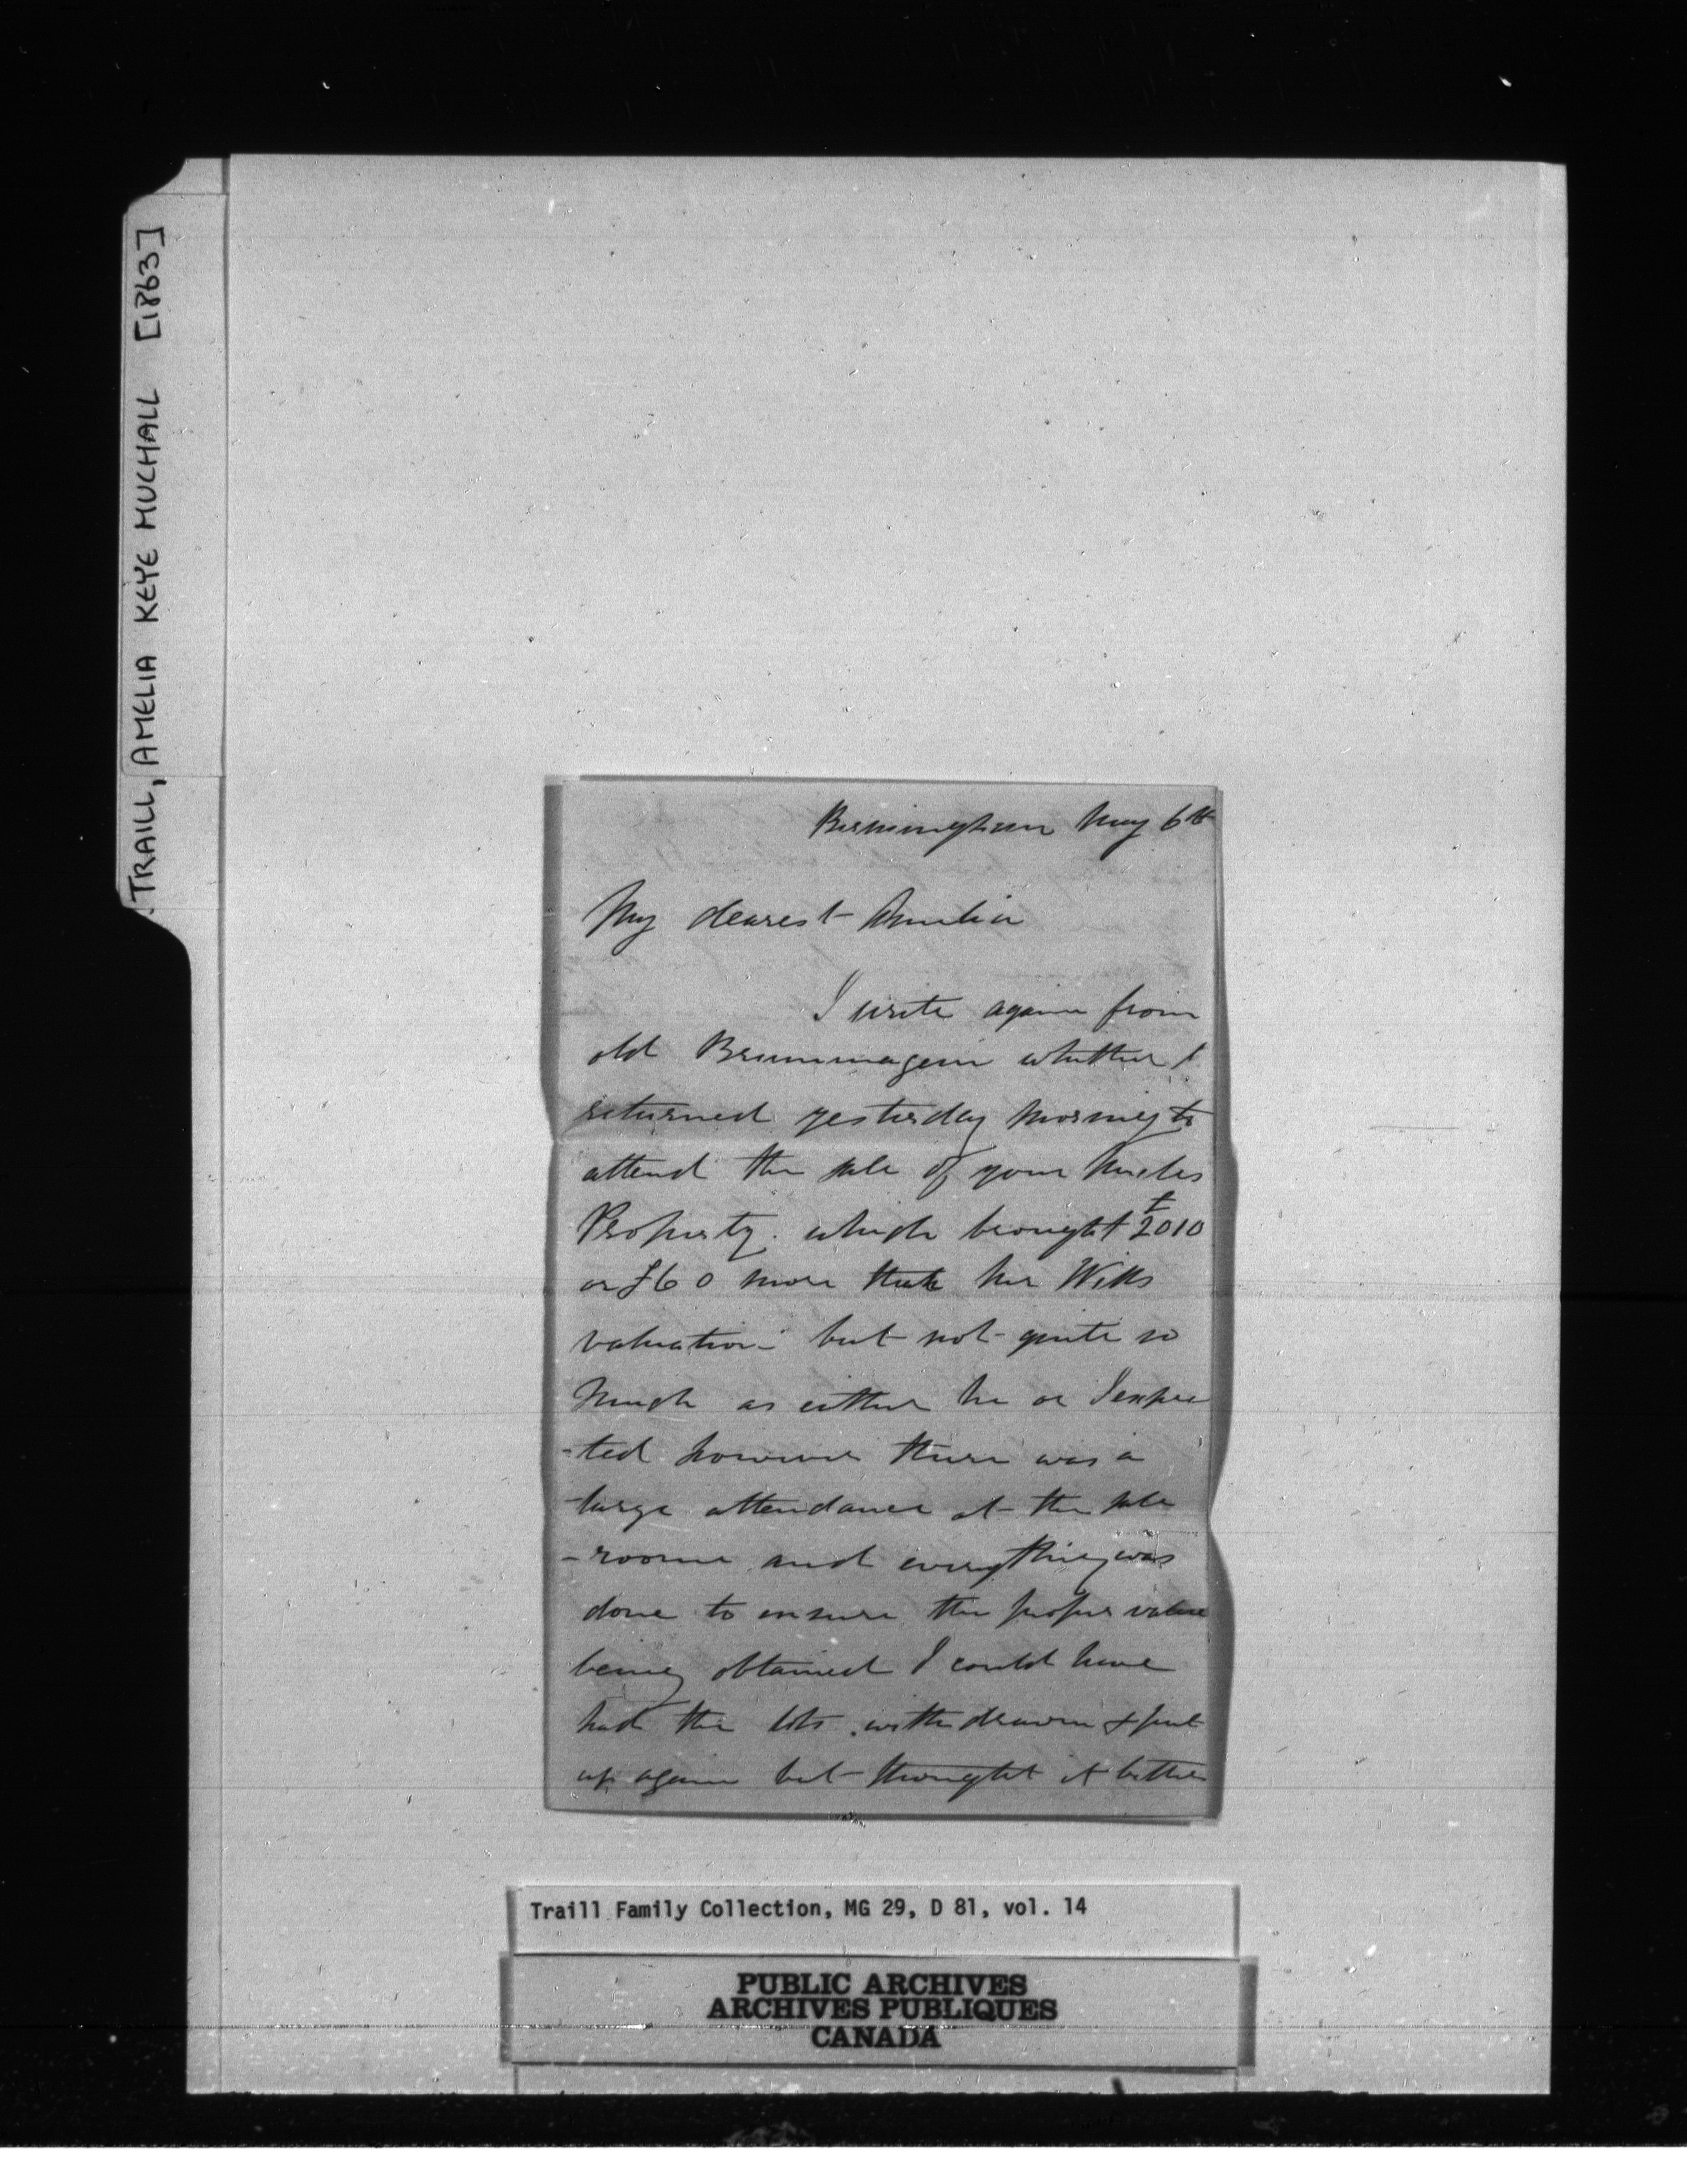 TRAILL, AMELIA KEYE MUCHALL [1863]
Birmingham May 6th
My dearest Amelia
I write again from
old Brummagem whither I
returned yesterday morning to
attend the sale of your Uncles
Property. which brought £2010
or £60 more than her Wills
valuation - but not quite so
much as either he or I expec
-ted however there was a
large attendance at the sale
-rooms and everything was
done to ensure the proper value
being obtained I could have
had the lots withdrawn & put
up again but thought it better
Traill Family Collection, MG 29, D 81, vol. 14
PUBLIC ARCHIVES
ARCHIVES PUBLIQUES
CANADA